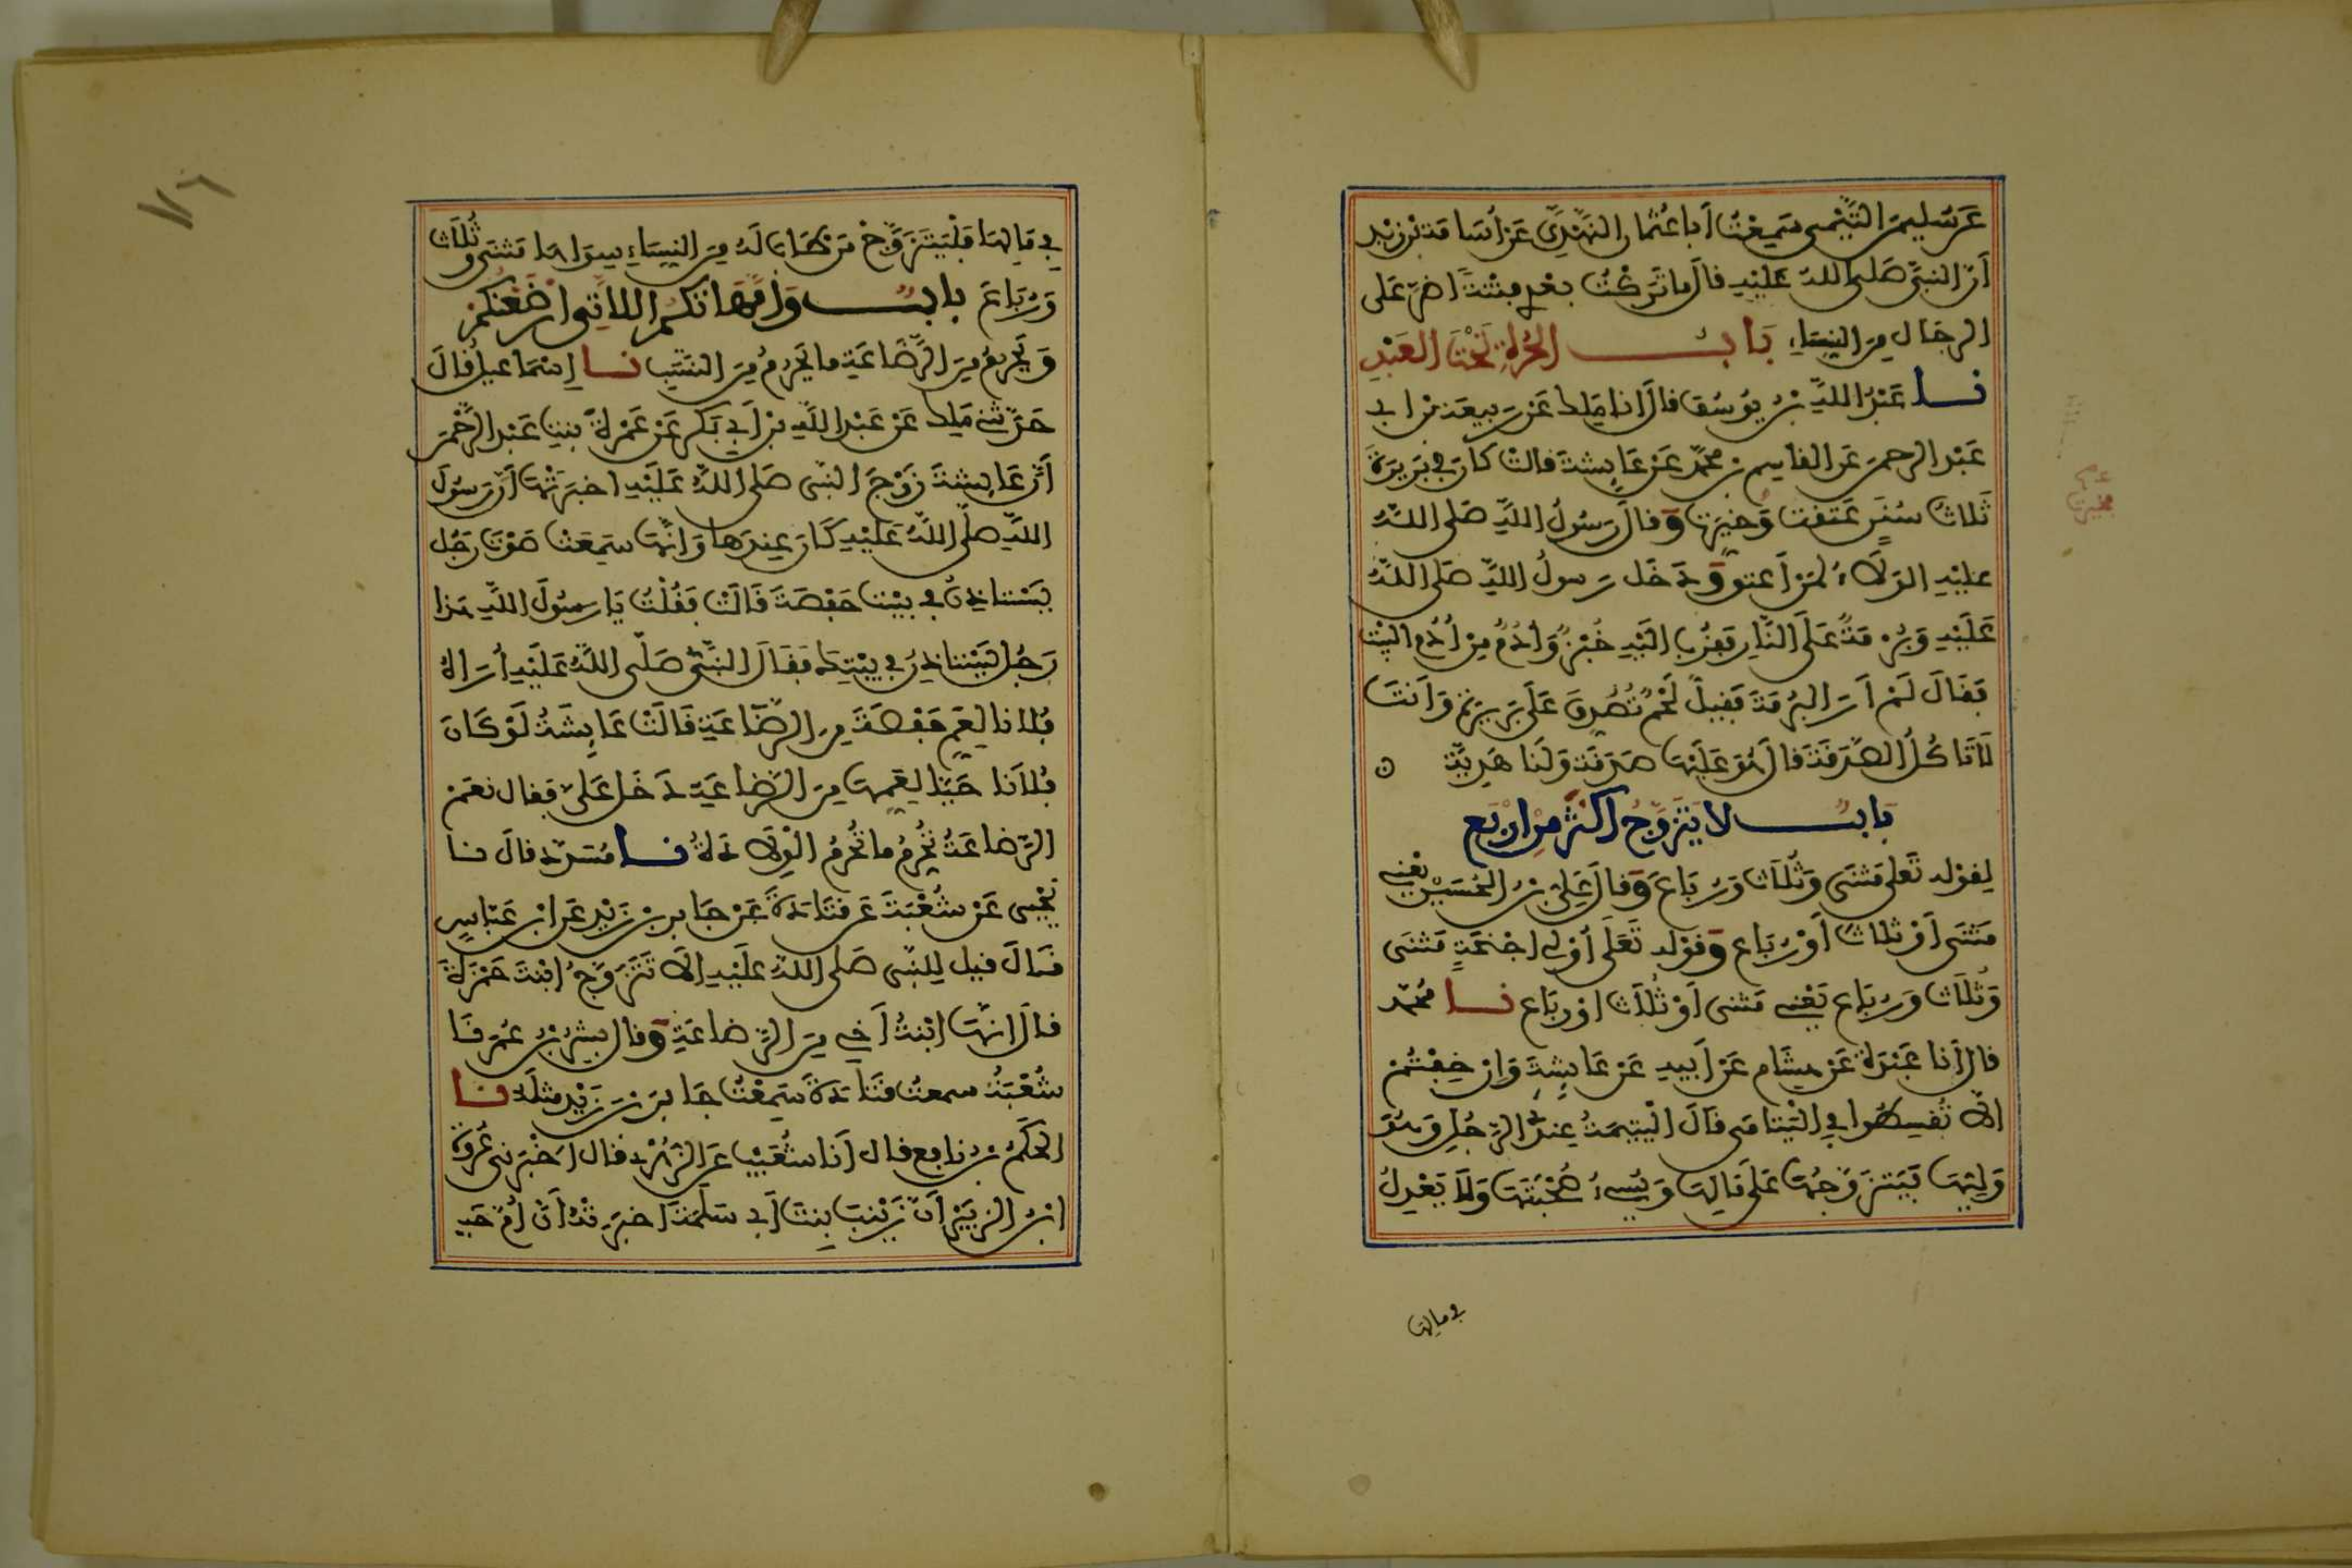 عَن سُليمن التَّيْمى سَمِعْتُ أَبا عُثمان النَّهْدِىَّ عَن أُسَامَة بْن زَيْد
أَنّ النبىّ صَلى اللهُ عَلَيْهِ قَالَ ما تَرَكْتُ بعْدِى فِتْنَةً اضرّ عَلى
الرجَال مِن النِّسَاءِ بَابُ الحُرّةِ تَحْتَ العَبْدِ
نا عَبْدُ اللهِ بنُ يُوسُف قالَ انا مَلك عَن رَبيعَة بن ابى
عَبْد الرحمن عَن القاسِم بن محمّد عَن عَايِشَة قالتْ كان فى بَرِيرَة
ثَلاثُ سُنَنٍ عَتَقت وَخُيّرت وَقالَ رَسُولُ اللهِ صَلى اللهُ
عليْهِ الوَلاَءُ لمَنْ أَعتق وَدَخَل رَسولُ اللهِ صَلى اللهُ
عَلَيْهِ وَبُرْمَةٌ عَلَى النَّارِ فقُرّب اليْهِ خُبْزٌ وَأُدْمٌ مِنْ أُدْمِ البيْت
فَقَالَ لَمْ أَرَ البُرْمَةَ فَقِيلَ لَحْمٌ تُصُدِّقَ عَلَى بَرِيرَة وَأَنتَ
لَا تَاكُلُ الصَّدَقَةَ قالَ هُوَ عَلَيْهَا صَدَقَة وَلَنَا هَدِيّةٌ
بَابُ لا يَتَزَوّجُ اكْثَرَ مِن ارْبَع
لِقوْله تَعَلى مَثْنَى وَثُلَاث وَرُبَاعَ وَقالَ عَلِىُّ بنُ الحُسَيْن يَعْنِى
مَثْنَى أَوْ ثلاثَ أَوْ رُبَاع وَقوْله تَعَلَى أُوْلِى اجْنِحَةٍ مَثْنَى
وَثُلَاثَ وَرُبَاع يَعْنِى مَثنى أَوْ ثُلَاثَ اوْ رُبَاع نا مُحمّد
قالَ أَنا عَبْدَة عَنْ هِشَام عَنْ أَبِيهِ عَنْ عَايِشَةَ وَإِنْ خِفْتُمْ
الاّ تُقسِطُوا فِى اليَتَامَى قالَ اليتِيمَةُ عِنْدَ الرّجُلِ وَهُوَ
وَلِيّهَا فَيَتَزَوّجُهَا عَلَى مَالِهَا وَيُسِىءُ صُحْبَتَهَا وَلَا يَعْدِلُ
فى مالها
فِى مَالِهَا فَلْيَتَزَوَّجْ مَن طَابَ لَهُ مِنَ النِّسَاءِ سِوَاهَا مَثْنى وَثُلَاثَ
وَرُبَاعَ بابُ وَامَّهَاتُكُم اللاتِى ارْضَعْنَكُمْ
وَيَحْرُمُ مِنَ الرَّضَاعَةِ مَا يَحْرُمُ مِنَ النَّسَبِ نا إِسْمَاعِيلُ قالَ
حَدَّثَنِى مَلك عَنْ عَبْد اللَّهِ بن أَبِى بَكر عَنْ عَمْرَةَ بِنْتِ عَبْد الرَّحْمَن
أَنّ عَايِشَةَ زَوْجَ النَّبى صَلى اللهُ عَلَيْهِ اخبَرَتْهَا أَنّ رَسُولَ
اللهِ صَلّى اللهُ عَلَيْهِ كَانَ عِنْدَهَا وَانَّهَا سَمِعَتْ صَوْتَ رَجُل
يَسْتَاذِنُ فِى بيْت حَفْصَةَ قَالَتْ فَقُلْتُ يَا رسُولَ اللَّهِ هَذا
رَجُل يَسْتَاذِنُ فِى بيْتِكَ فَقَالَ النَّبِىُّ صَلّى اللهُ عَلَيْهِ أُرَاهُ
فُلانا لِعَمِّ حَفْصَةَ مِن الرَّضَاعَةِ قَالَتْ عَايِشَةُ لَوْ كَانَ
فُلاَنا حَيًّا لِعَمِّهَا مِنَ الرَّضَاعَةِ دَخَل عَلَىّ فَقال نعَمْ
الرَّضَاعَةُ تُحَرِّمُ مَا تُحَرِّمُ الْوِلَادَةُ نا مُسَدّد قالَ نا
يَحْيى عَنْ شُعْبَةَ عَن قَتَادَةَ عَنْ جَابِر بن زَيْد عَن ابْن عَبّاسٍ
قَالَ قيل لِلنَّبى صَلى اللهُ عَلَيْهِ الَا تَتَزَوَّجُ ابْنَةَ حَمْزَةَ
قالَ انَّهَا ابْنَةُ أَخِى مِنَ الرَّضَاعَةِ وَقال بِشْرُ بْنُ عُمَرَ نَا
شُعْبَةُ سمعتُ قَتَادَةَ سَمِعْتُ جَابِرَ بنَ زَيْد مثلَهُ نا
الحَكَمُ بنُ نافِع قال أَنَا شُعَيْب عَن الزُّهْرى قال اَخْبَرَنى عُرْوَة
ابْنُ الزبَيْر أَنّ زَيْنَبَ بِنتَ أَبى سَلَمَةَ اخبَرَتْهُ أَنّ أُمّ حَبِيـ